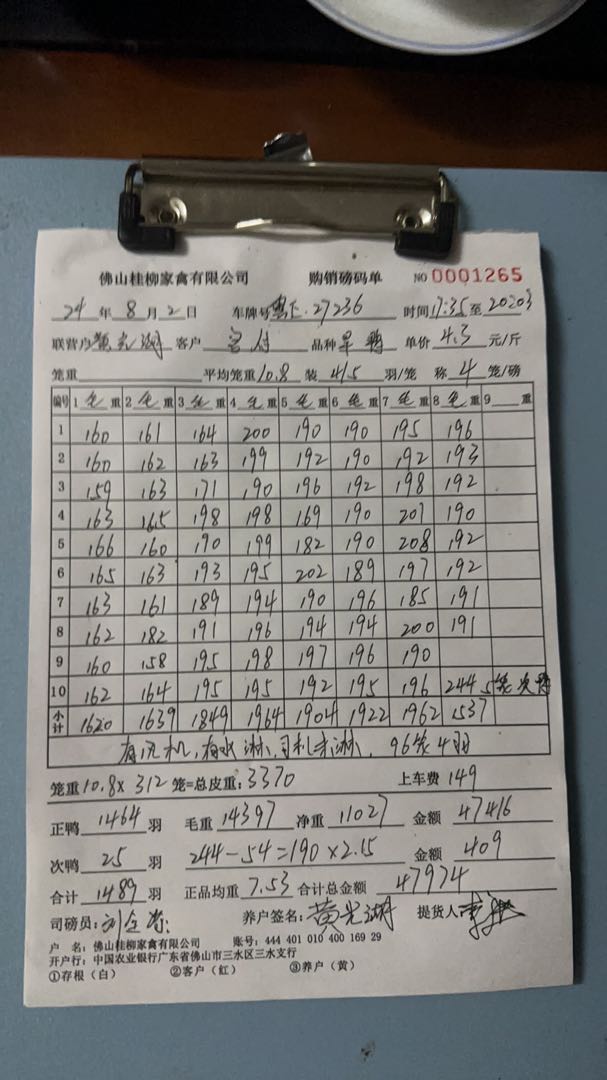 佛山桂柳家禽有限公司 购销磅码单 NO 0001265
24 年 8 月 2 日 车牌号 粤E.27236 时间 17:35 至 20203
联营户 黄光湖 客户 品种 单价 4.3 元/斤
笼重 平均笼重 10.8 装 4/5 羽/笼 称 4 笼/磅
编号 1 毛 重 2 毛 重 3 毛 重 4 毛 重 5 毛 重 6 毛 重 7 毛 重 8 毛 重 9 重
1 160 161 164 200 190 190 195 196
2 160 162 163 199 192 190 192 193
3 159 163 171 190 196 192 198 192
4 163 165 198 198 169 190 207 190
5 166 160 190 199 182 190 208 192
6 165 163 193 195 202 189 197 192
7 163 161 189 194 190 196 185 191
8 162 182 191 196 194 194 200 191
9 160 158 195 198 197 196 190
10 162 164 195 195 192 195 196 244 5笼次鸭
小计 1620 1639 1849 1964 1904 1922 1962 1537
有风机,有水淋,司机未淋, 96笼4羽
笼重 10.8 × 312 笼=总皮重: 3370 上车费 149
正鸭 1464 羽 毛重 14397 净重 11027 金额 47416
次鸭 25 羽 244-54=190×2.15 金额 409
合计 1489 羽 正品均重 7.53 合计总金额 47974
司磅员: 养户签名: 黄光湖 提货人
户 名: 佛山桂柳家禽有限公司 账号: 444 401 010 400 169 29
开户行: 中国农业银行广东省佛山市三水区三水支行
①存根(白) ②客户(红) ③养户(黄)